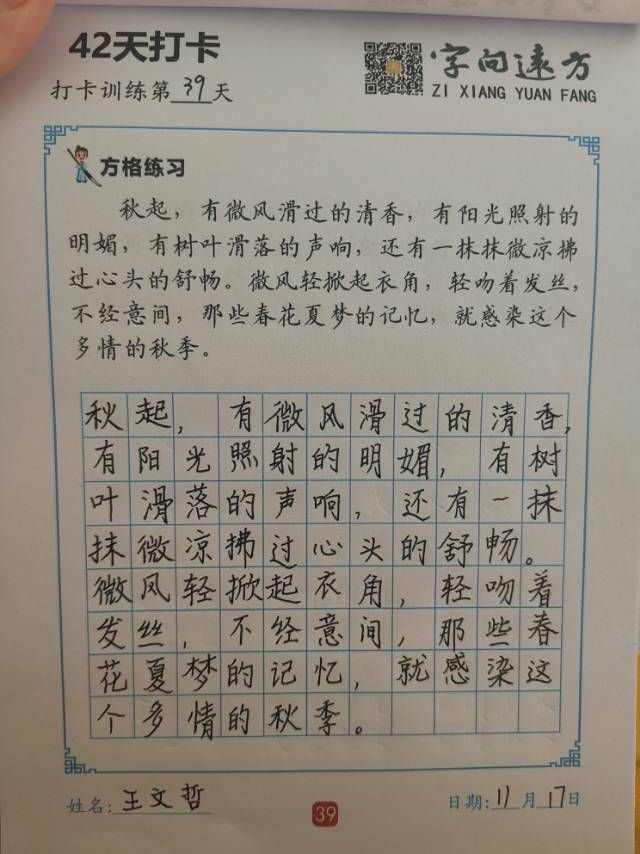 42天打卡
打卡训练第39天
字向远方
ZI XIANG YUAN FANG
方格练习
秋起，有微风滑过的清香，有阳光照射的
明媚，有树叶滑落的声响，还有一抹抹微凉拂
过心头的舒畅。微风轻掀起衣角，轻吻着发丝，
不经意间，那些春花夏梦的记忆，就感染这个
多情的秋季。
秋起，有微风滑过的清香，
有阳光照射的明媚，有树
叶滑落的声响，还有一抹
抹微凉拂过心头的舒畅。
微风轻掀起衣角，轻吻着
发丝，不经意间，那些春
花夏梦的记忆，就感染这
个多情的秋季。
姓名:王文哲
39
日期:11月17日